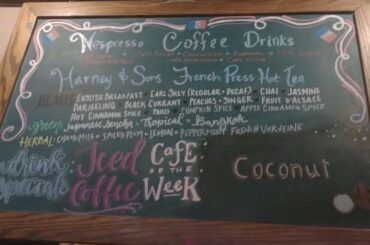 Nespresso Coffee Drinks
Harney & Sons French Press Hot Tea
BLACK: ENGLISH BREAKFAST EARL GREY (REGULAR • DECAF) • CHAI • JASMINE
DARJEELING • BLACK CURRANT • PEACHES • GINGER • FRUIT D'ALSACE
HOT CINNAMON SPICE • PARIS • PUMPKIN SPICE APPLE CINNAMON SPICE
green: Japanese Sencha • Tropical • Bangkok
HERBAL: CHAMOMILE • SPICED PLUM • LEMON • PEPPERMINT FRENCH VERVEINE
drink
Specials
Iced
Coffee
CAFE
OF THE
WEEK
Coconut